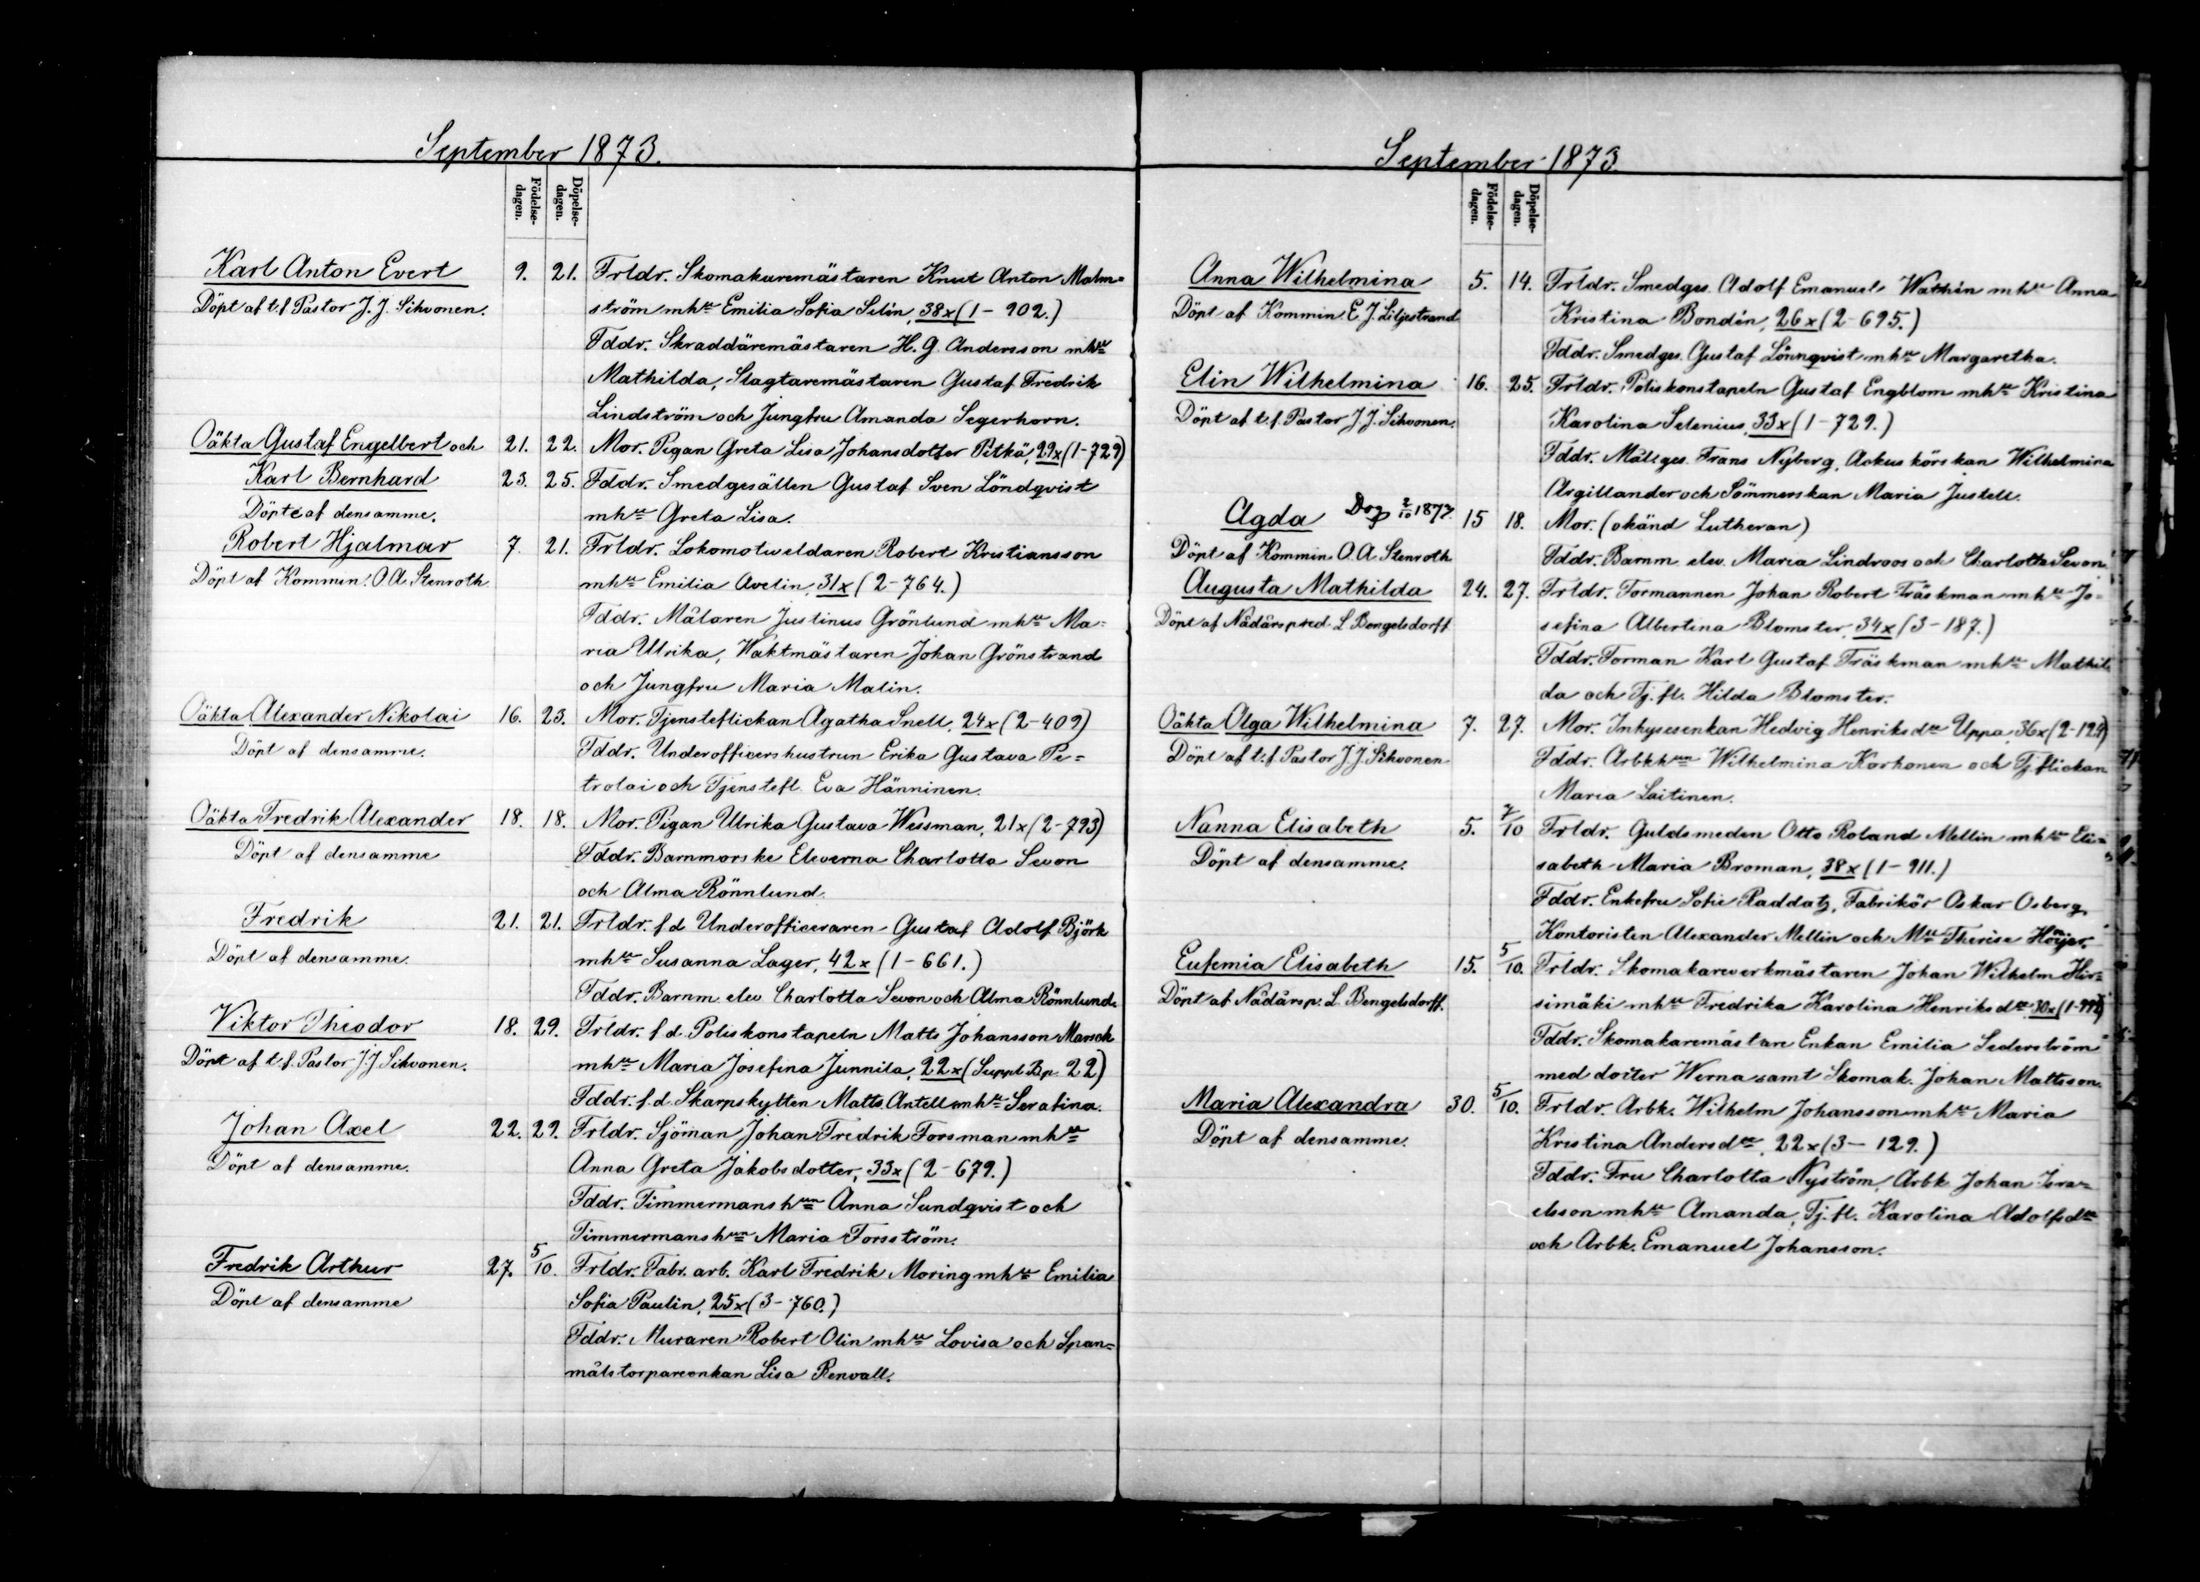 September 1873.
Födelse-dagen.
Döpelse-dagen.
Karl Anton Evert 9. 21. Frldr. Skomakaremästaren Knut Anton Malm=
Döpt af t.f. Pastor J. J. Sihvonen. ström mhu Emilia Sofia Selin, 38 x (1-902.)
Fddr. Skraddäremästaren H. G. Andersson mhu
Mathilda, Slagtaremästaren Gustaf Fredrik
Lindström och Jungfru Amanda Segerhorn.
Oäkta Gustaf Engelbert och 21. 22. Mor. Pigan Greta Lisa Johansdotter Pitkä, 29 x (1-729)
Karl Bernhard 23. 25. Fddr. Smedgesällen Gustaf Sven Löndqvist
Döpte af densamme. mhu Greta Lisa.
Robert Hjalmar 7. 21. Frldr. Lokomotiveldaren Robert Kristiansson
Döpt af Kommin. O. A. Stenroth mhu Emilia Avelin, 31 x (2-764.)
Fddr. Målaren Justinus Grönlund mhu Ma=
ria Ulrika, Waktmästaren Johan Grönstrand
och Jungfru Maria Malin.
Oäkta Alexander Nikolai 16. 23. Mor. Tjensteflickan Agatha Snell, 24 x (2-409)
Döpt af densamme. Fddr. Underofficershustrun Erika Gustava Pe=
trolai och Tjenstefl. Eva Hänninen.
Oäkta Fredrik Alexander 18. 18. Mor. Pigan Ulrika Gustava Wessman, 21 x (2-793)
Döpt af densamme Fddr. Barnmorske Eleverna Charlotta Sevon
och Alma Rönnlund.
Fredrik 21. 21. Frldr. f d Underofficeraren Gustaf Adolf Björk
Döpt af densamme. mhu Susanna Lager, 42 x (1-661.)
Fddr. Barnm. elev. Charlotta Sevon och Alma Rönnlund.
Viktor Theodor 18. 29. Frldr. f d. Poliskonstapeln Matts Johansson Marsch
Döpt af t.f. Pastor J. J Sihvonen. mhu Maria Josefina Junnila, 22 x (Suppl. Bp. 22)
Fddr. f.d. Skarpskytten Matts Antell mhu Serafina.
Johan Axel 22. 29. Frldr. Sjöman Johan Fredrik Forsman mhu
Döpt af densamme. Anna Greta Jakobsdotter, 33 x (2-679.)
Fddr. Timmermanshun Anna Sundqvist och
Timmermanshun Maria Forsström.
Fredrik Arthur 27. 5/10. Frldr. Fabr. arb. Karl Fredrik Moring mhu Emilia
Döpt af densamme Sofia Paulin, 25 x (3-760.)
Fddr. Muraren Robert Olin mhu Lovisa och Span=
målstorpareenkan Lisa Renvall.
September 1873.
Födelse-dagen.
Döpelse-dagen.
Anna Wilhelmina 5. 14. Frldr. Smedges. Adolf Emanuel Wathén mhu Anna
Döpt af Kommin E. J. Liljestrand Kristina Bondén, 26 x (2-695.)
Fddr. Smedges. Gustaf Lönnqvist mhu Margaretha.
Elin Wilhelmina 16. 25. Frldr. Poliskonstapeln Gustaf Engblom mhu Kristina
Döpt af t.f. Pastor J. J. Sihvonen. Karolina Selenius, 33 x (1-729.)
Fddr. Målges. Frans Nyberg, Ackuskörskan Wilhelmina
Argillander och Sömmerskan Maria Justell.
Agda Dog 2/10 1877. 15 18. Mor. (okänd Lutheran)
Döpt af Kommin. O. A. Stenroth Fddr. Barnm. elev. Maria Lindroos och Charlotta Sevon.
Augusta Mathilda 24. 27. Frldr. Formannen Johan Robert Träskman mhu Jo=
Döpt af Nådårspred. L Bengelsdorff sefina Albertina Blomster, 34 x (3-187.)
Fddr. Forman Karl Gustaf Träskman mhu Mathil
da och Tj. fl. Hilda Blomster.
Oäkta Olga Wilhelmina 7. 27. Mor. Inhysesenkan Hedvig Henriksdr Uppa, 36 x (2-129)
Döpt af t.f. Pastor J. J. Sihvonen Fddr. Arbkhun Wilhelmina Korhonen och Tj. flickan
Maria Laitinen.
Nanna Elisabeth 5. 7/10 Frldr. Guldsmeden Otto Roland Mellin mhu Eli=
Döpt af densamme. sabeth Maria Broman, 38 x (1-911.)
Fddr. Enkefru Sofie Raddatz, Fabrikör Oskar Osberg,
Kontoristen Alexander Mellin och Mll Therese Höijer.
Eufemia Elisabeth 15. 5/10. Frldr. Skomakareverkmästaren Johan Wilhelm Hir=
Döpt af Nådårsp. L. Bengelsdorff. simäki mhu Fredrika Karolina Henriksdr 30 x
Fddr. Skomakaremästare Enkan Emilia Sederström
med dotter Werna samt Skomak. Johan Mattsson.
Maria Alexandra 30. 5/10. Frldr. Arbk. Wilhelm Johansson mhu Maria
Döpt af densamme. Kristina Andersdr, 22 x (3-129.)
Fddr. Fru Charlotta Nyström, Arbk. Johan Isra=
elsson mhu Amanda, Tj. fl. Karolina Adolfsdr
och Arbk. Emanuel Johansson.